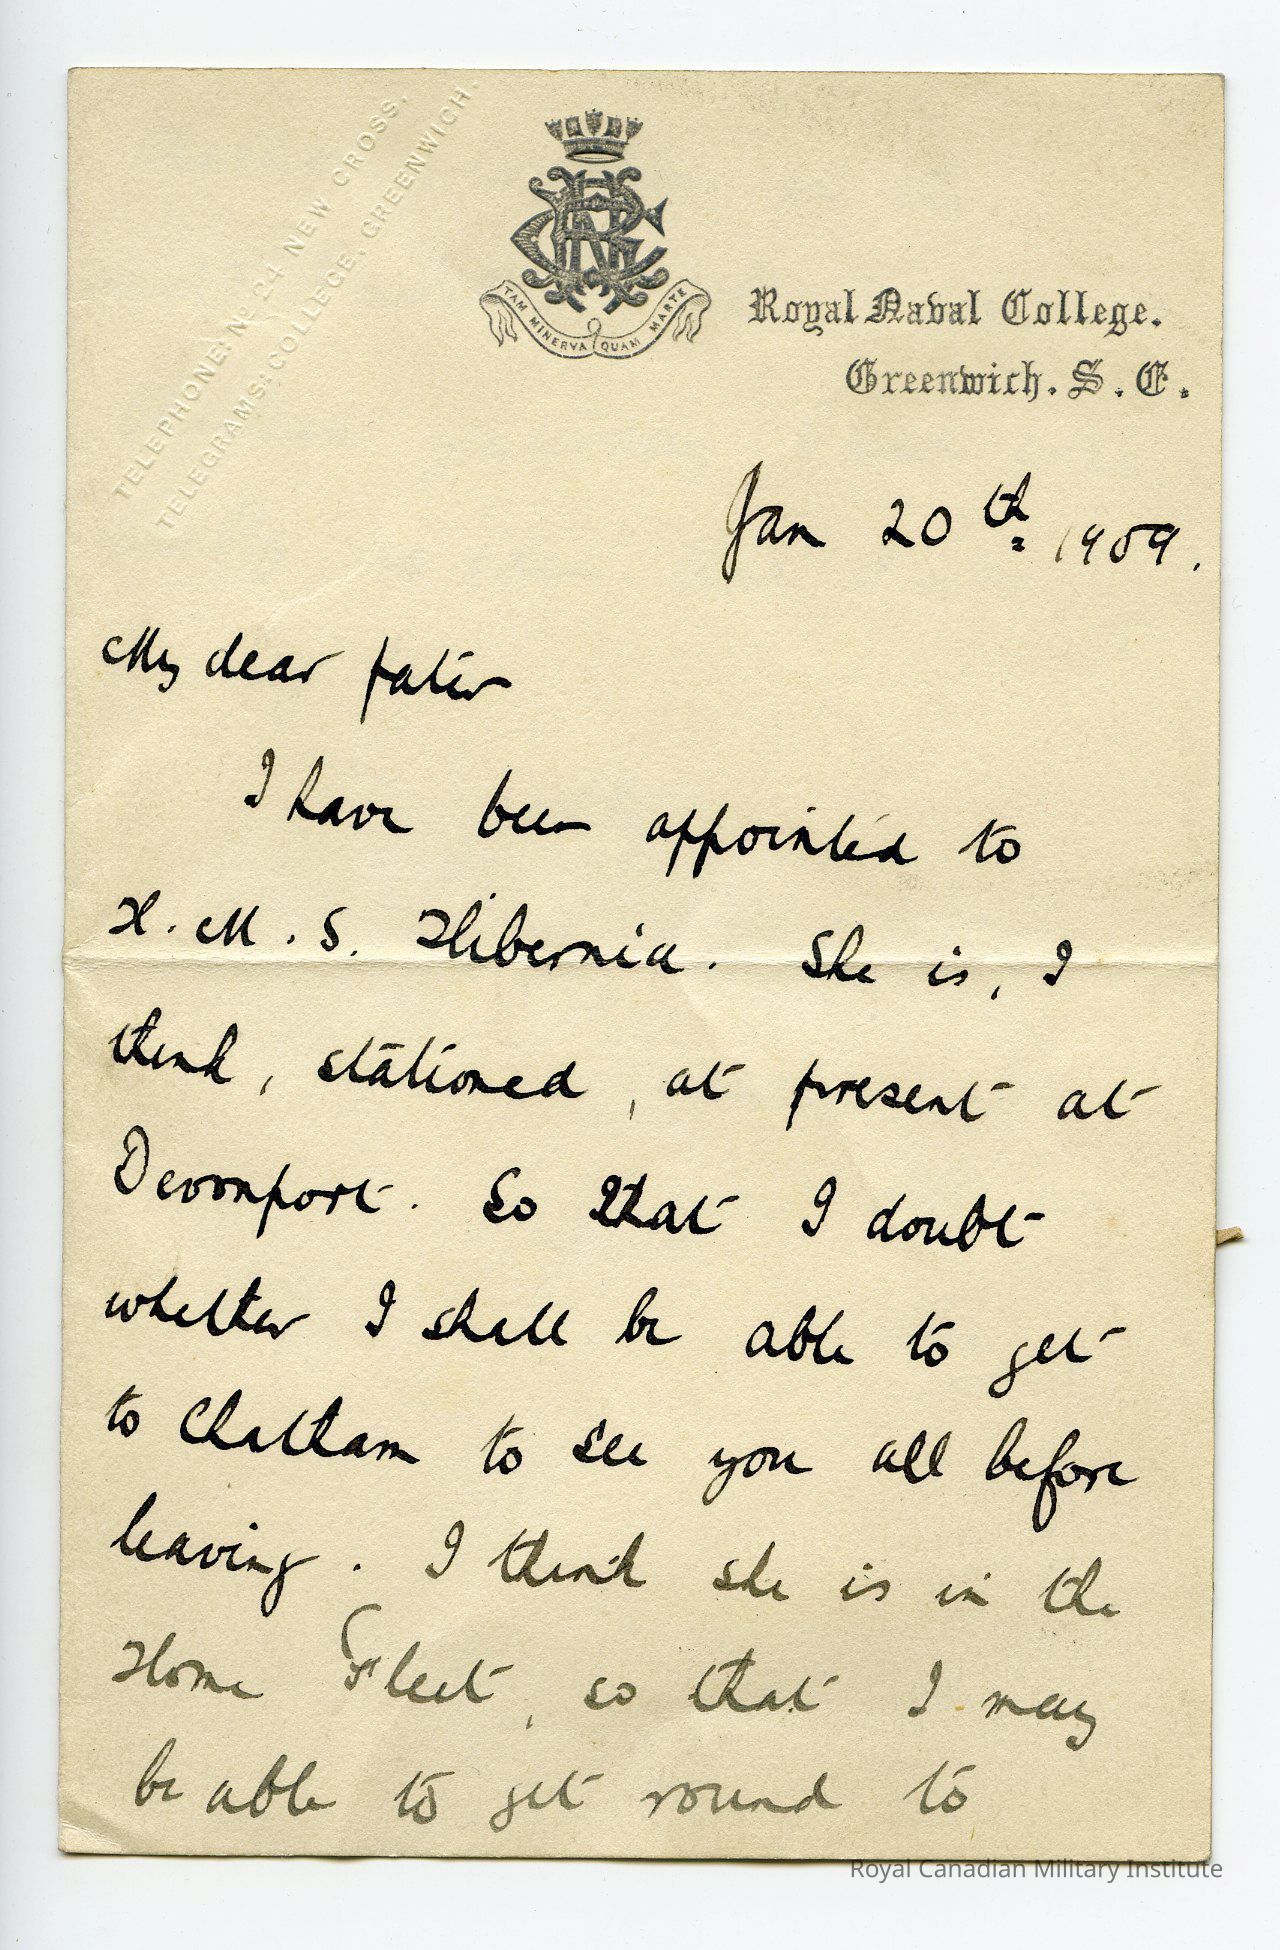 TELEPHONE: N. 24 NEW CROSS.
TELEGRAMS: COLLEGE, GREENWICH.
TAM MINERVA QUAM MARTE
Royal Naval College.
Greenwich. S. E.
Jan 20th 1909.
My dear pater
I have been appointed to
H. M. S. Hibernia. She is, I
think, stationed, at present at
Devonport. So that I doubt
whether I shall be able to get
to Chatham to see you all before
leaving. I think she is in the
Home Fleet, so that I may
be able to get round to
Royal Canadian Military Institute